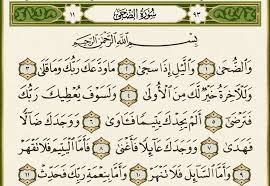 ٩٣ سُورَةُ الضُّحَىٰ ١١
بِسْمِ اللَّهِ الرَّحْمَٰنِ الرَّحِيمِ
وَالضُّحَىٰ ١ وَاللَّيْلِ إِذَا سَجَىٰ ٢ مَا وَدَّعَكَ رَبُّكَ وَمَا قَلَىٰ ٣
وَلَلْآخِرَةُ خَيْرٌ لَّكَ مِنَ الْأُولَىٰ ٤ وَلَسَوْفَ يُعْطِيكَ رَبُّكَ
فَتَرْضَىٰ ٥ أَلَمْ يَجِدْكَ يَتِيمًا فَآوَىٰ ٦ وَوَجَدَكَ ضَالًّا
فَهَدَىٰ ٧ وَوَجَدَكَ عَائِلًا فَأَغْنَىٰ ٨ فَأَمَّا الْيَتِيمَ فَلَا تَقْهَرْ
٩ وَأَمَّا السَّائِلَ فَلَا تَنْهَرْ ١٠ وَأَمَّا بِنِعْمَةِ رَبِّكَ فَحَدِّثْ ١١